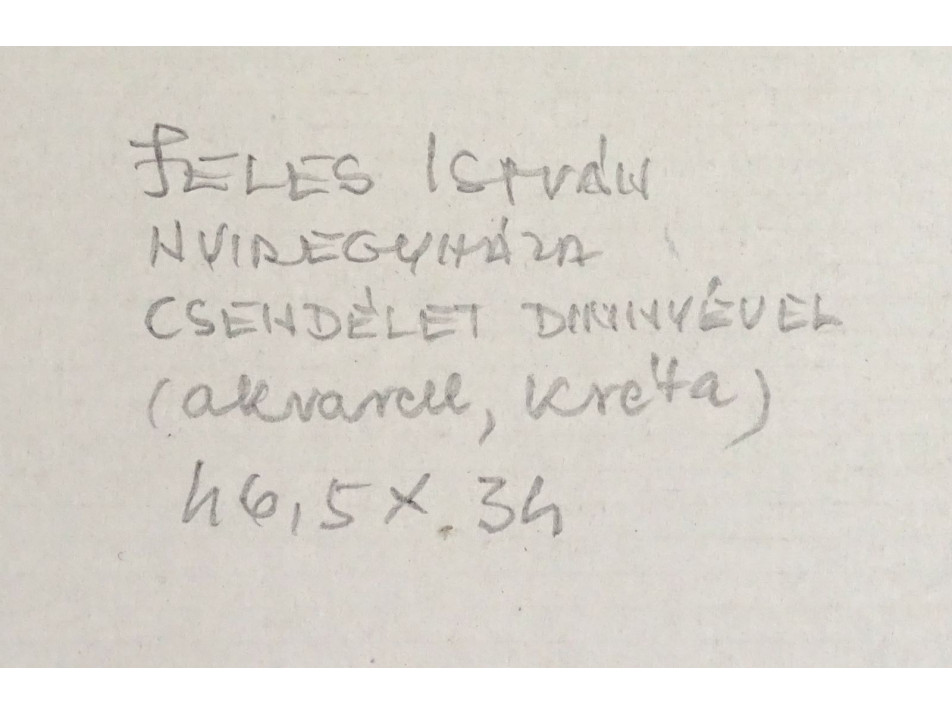 JELES ISTVÁN
NYIREGYHÁZA
CSENDÉLET DINNYÉVEL
(akvarell, kréta)
46,5 X 34